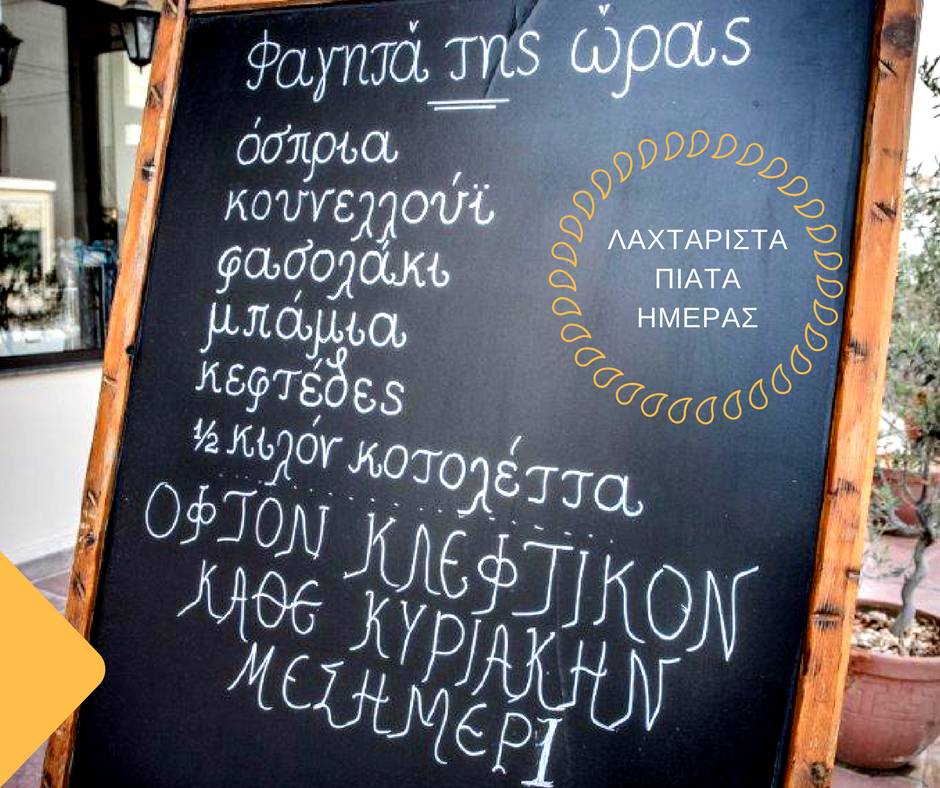 Φαγητά της ώρας
όσπρια
κουνελλούϊ
φασολάκι
μπάμια
κεφτέδες
½ κιλόν κοτολέττα
ΟΦΤΟΝ ΚΛΕΦΤΙΚΟΝ
ΚΑΘΕ ΚΥΡΙΑΚΗΝ
ΜΕΣΗΜΕΡΙ
ΛΑΧΤΑΡΙΣΤΑ
ΠΙΑΤΑ
ΗΜΕΡΑΣ